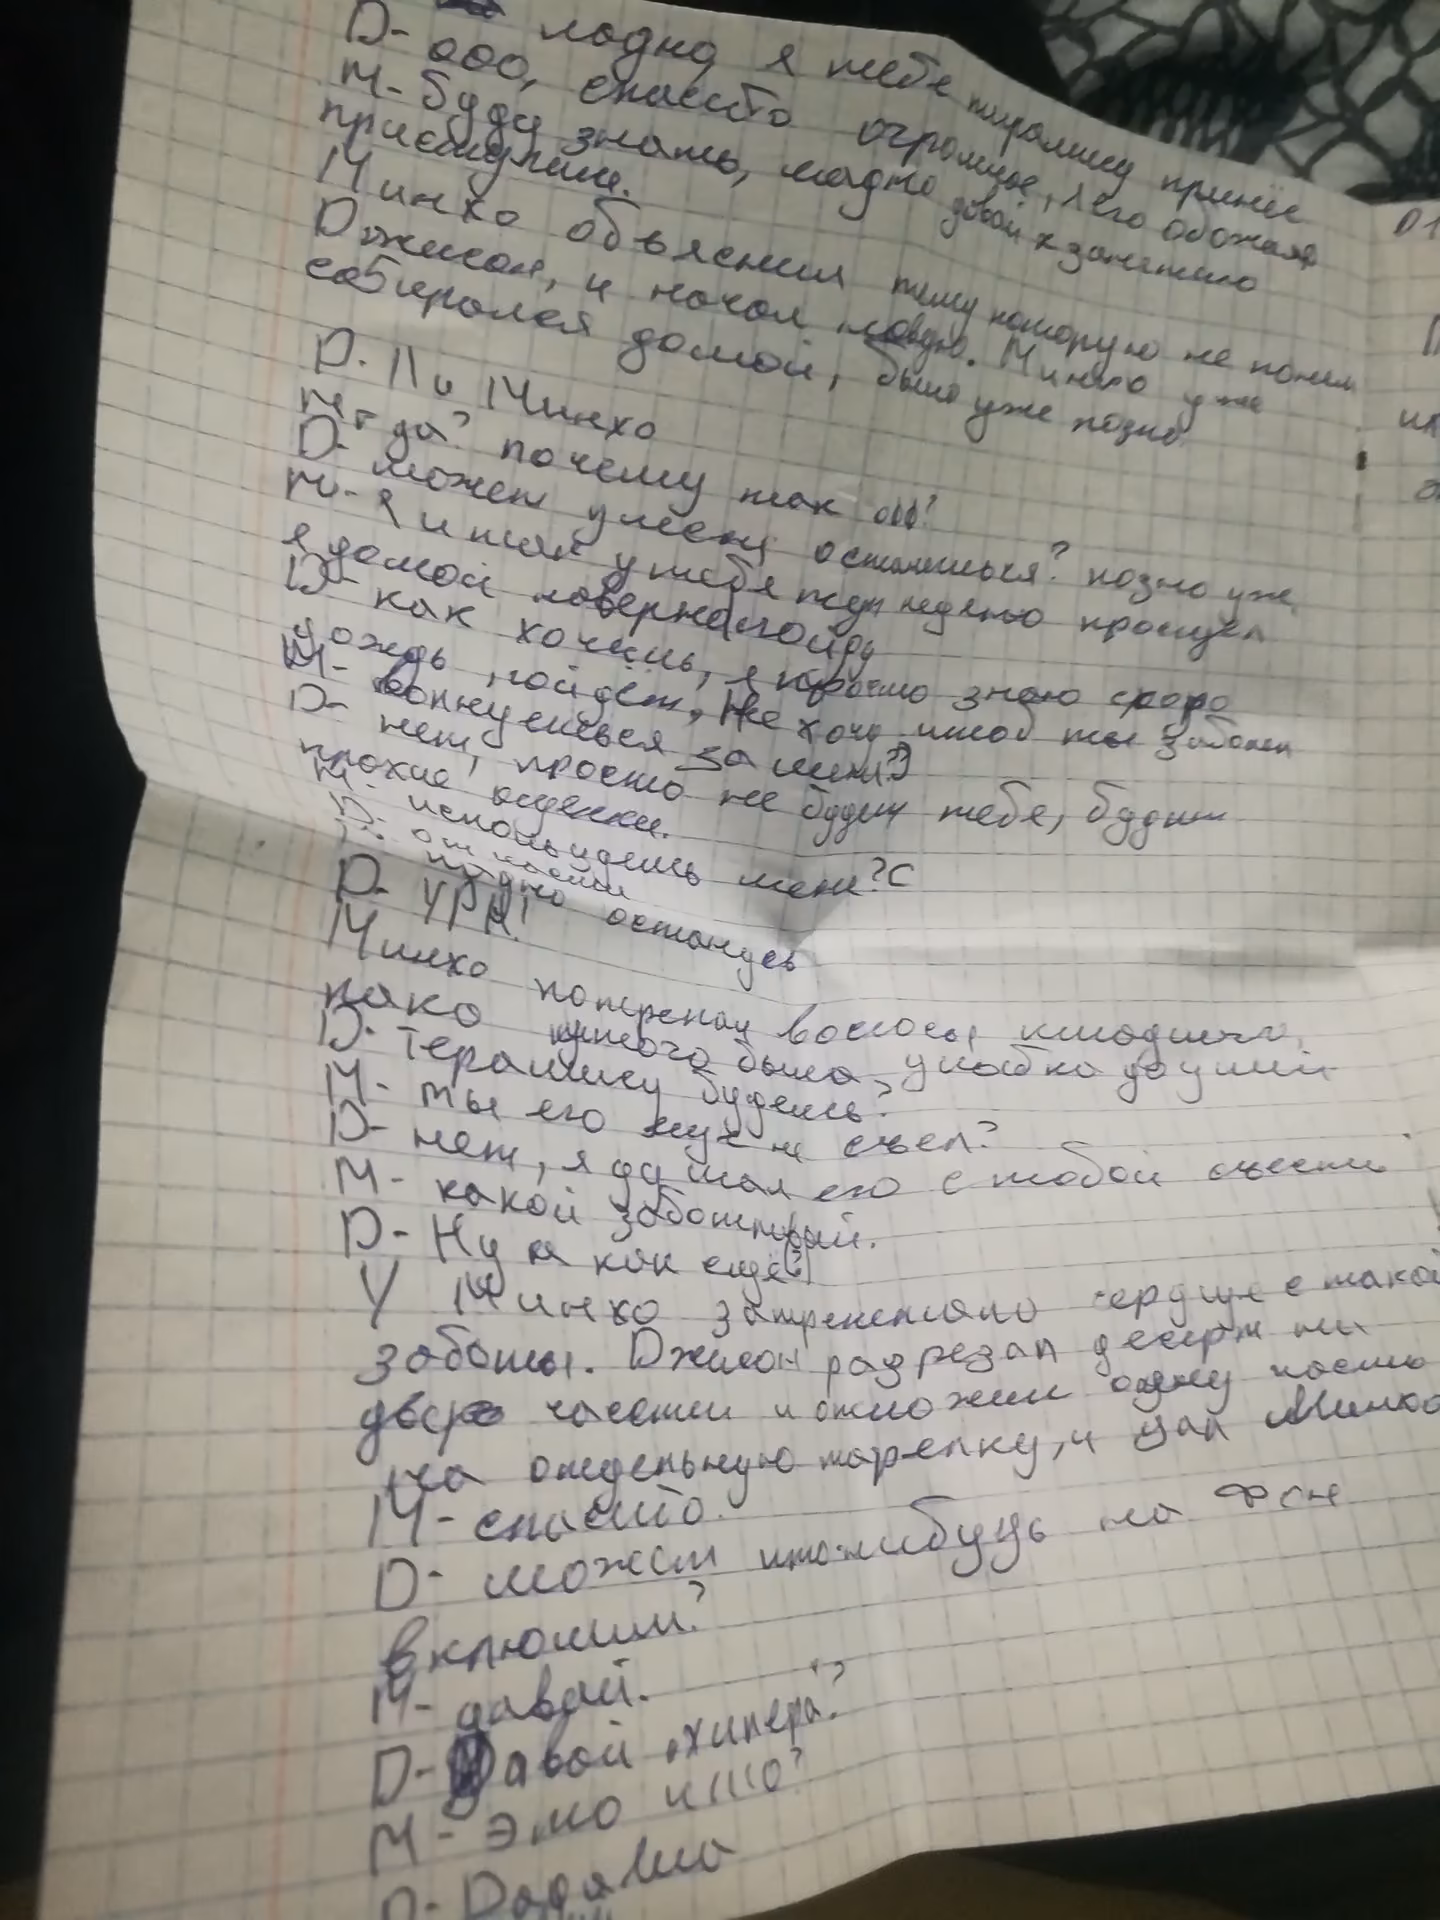 ладно, я тебе тирамису принёс
D- ооо, спасибо огромное, я его обожаю
М- буду знать, ладно давай к занятию
приступим.
Минхо объяснил тему которую не понял
Джисон, и начал новую. Минхо уже
собирался домой, было уже поздно.
D- Ли Минхо
М- да? почему так
D- может у меня останешься? поздно уже
М- Я и так у тебя неделю
я домой наверно пойду
D- как хочешь, я просто знаю скоро
дождь пойдёт, не хочу чтоб ты заболел
М- волнуешься за меня?
D- нет, просто не будет тебя, будут
плохие оценки.
М- используешь меня?с
D- от части
ладно останусь
D- УРА!
Минхо потрепал волосы младшего,
пако была улыбка до ушей
D- Терамису будешь?
М- ты его ещё не съел?
D- нет, я думал его с тобой съесть
М- какой заботливый.
D- Ну а как ещё?
У Минхо затрепетало сердце с такой
заботы. Джисон разрезал десерт на
две части и отложил одну часть
на отдельную тарелку, и дал Минхо
М- спасибо.
D- может что-нибудь на фон
включим?
М- давай.
D- Давай „хипера"?
М- это кто?
D-